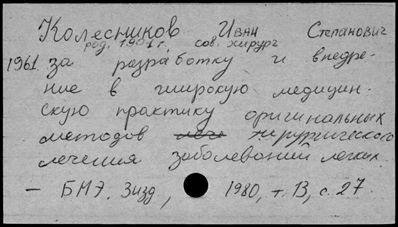 Колесников Иван Степанович
род. 1901 г. сов. хирург
1961. за разработку и внедре-
ние в широкую медицин-
скую практику оригинальных
методов хирургического
лечения заболеваний легких.
– БМЭ. 3изд, 1980, т. 13, с. 27.